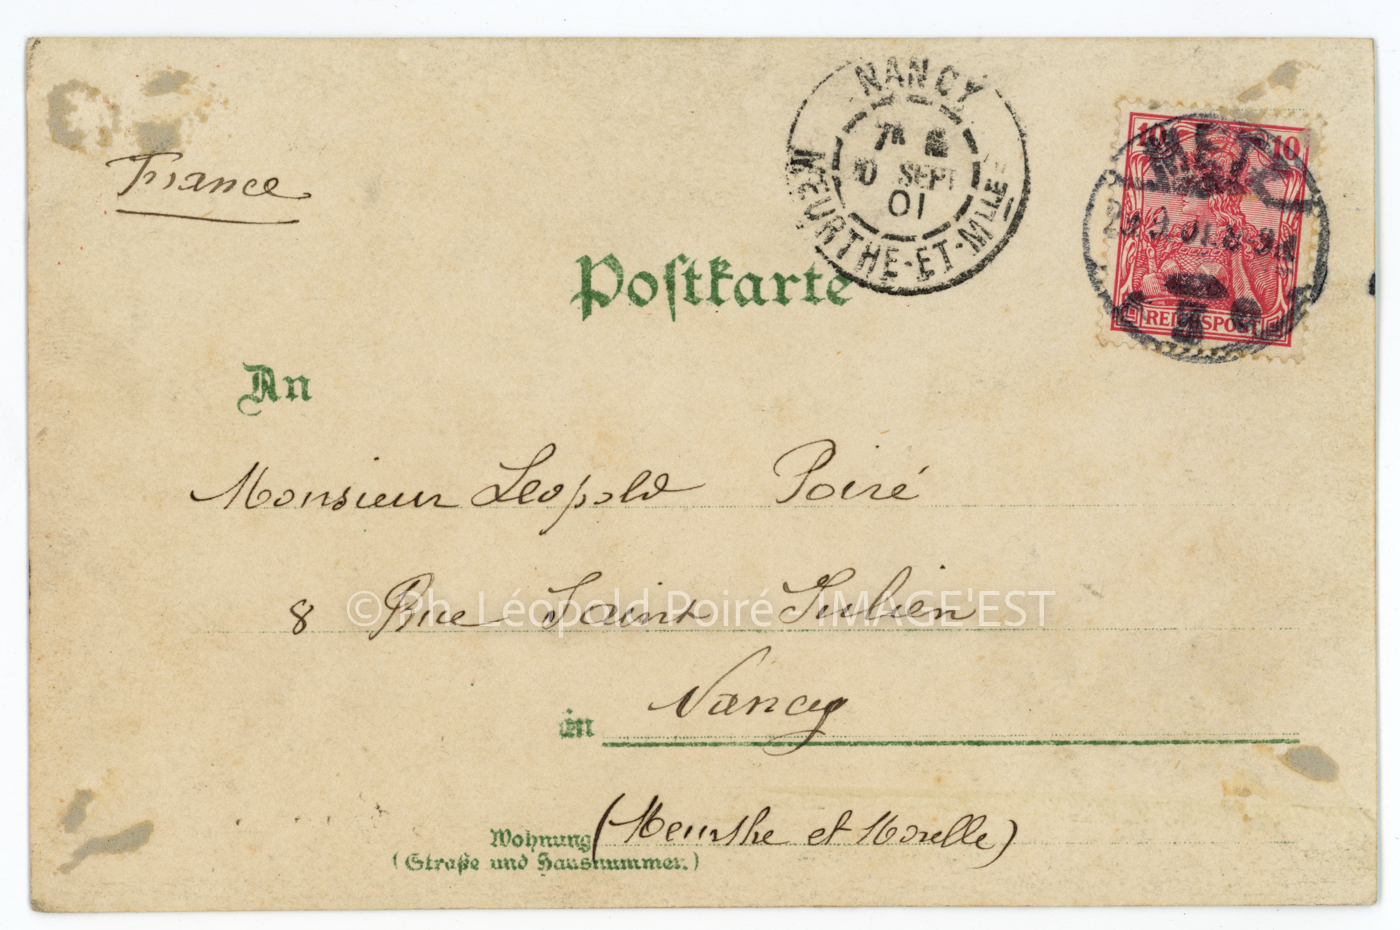 NANCY
10 SEPT
01
MEURTHE-ET-MLLE
10 10
METZ
REICHSPOST
France
Postkarte
An
Monsieur Leopold Poiré
8 Rue Saint Julien
©Ph. Léopold Poiré / IMAGE'EST
in Nancy
(Meurthe et Moselle)
Wohnung
(Straße und Hausnummer.)